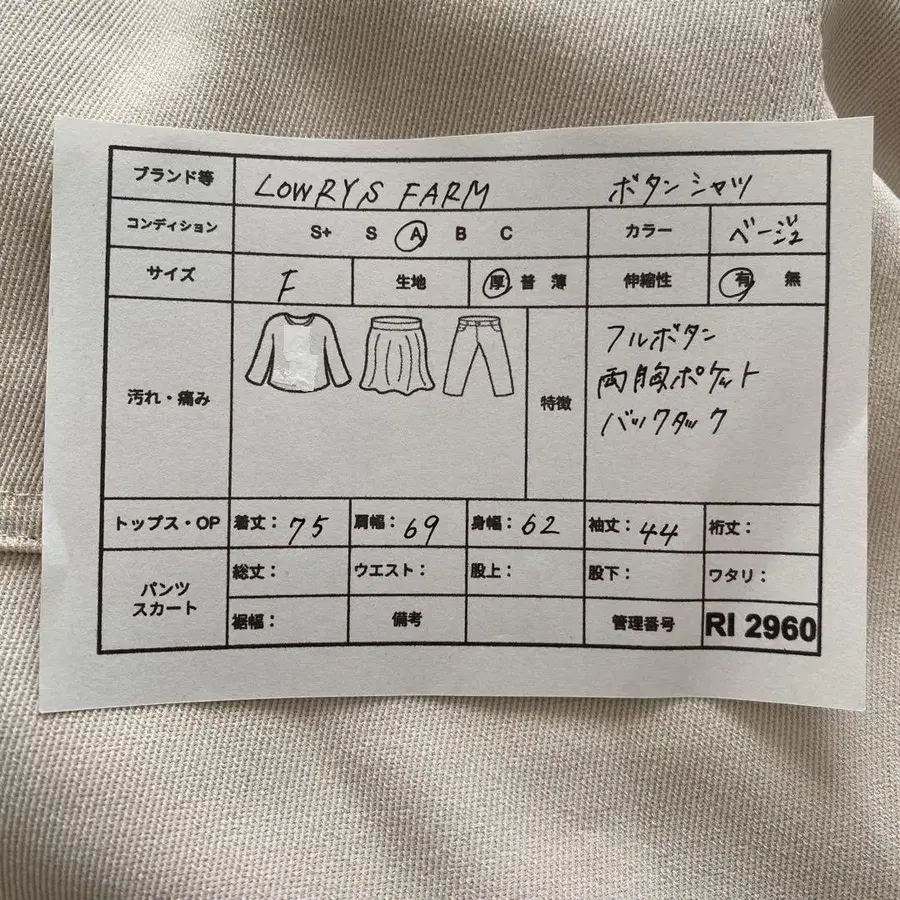 ブランド等 LOWRYS FARM ボタンシャツ
コンディション S+ S A B C カラー ベージュ
サイズ F 生地 厚 普 薄 伸縮性 有 無
汚れ・痛み 特徴 フルボタン
両胸ポケット
バックタック
トップス・OP 着丈：75 肩幅：69 身幅：62 袖丈：44 裄丈：
パンツ
スカート
総丈： ウエスト： 股上： 股下： ワタリ：
裾幅： 備考 管理番号 RI 2960